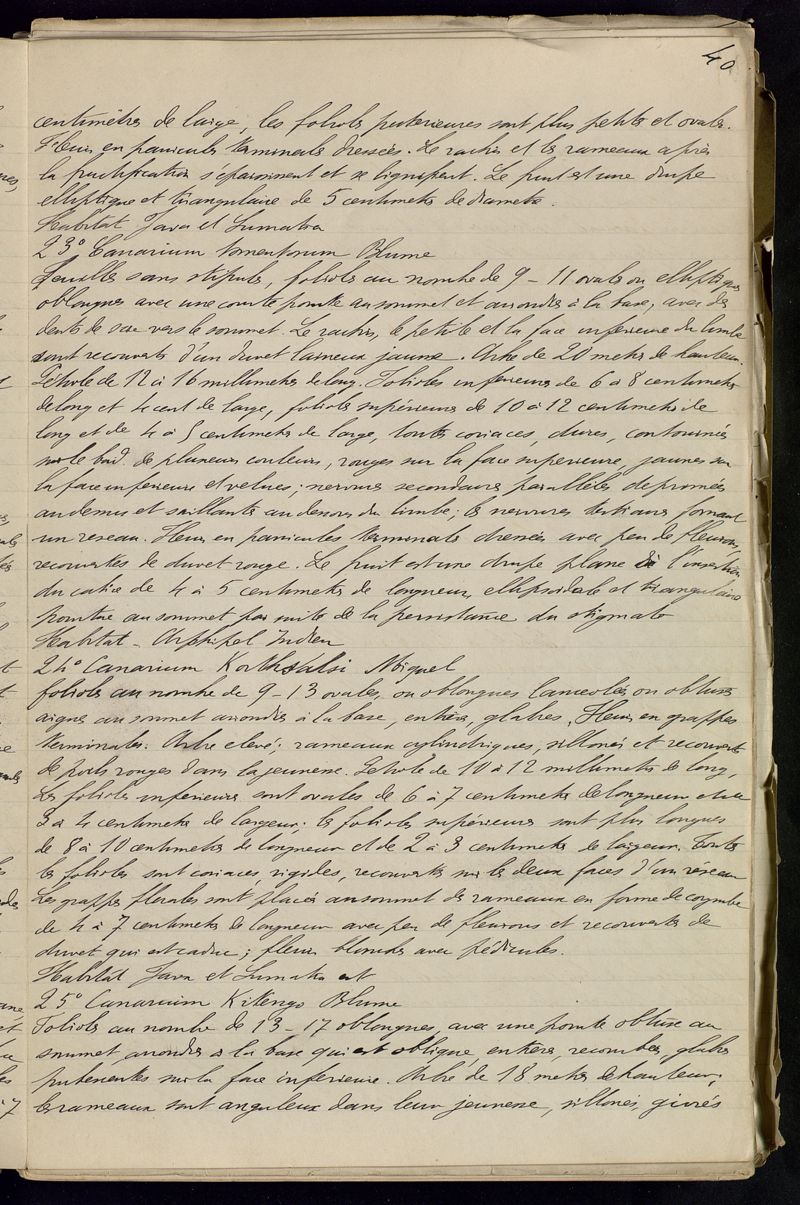 40
centimètres de large, les folioles posterieures sont plus petites et ovales.
Fleurs en panicules terminales dressées. Le rachis et les rameaux après
la fructification s'épaississent et se lignifient. Le fruit est une drupe
elliptique et triangulaire de 5 centimetres de diametre.
Habitat Java et Sumatra
23º Canarium tomentosum Blume
Feuilles sans stipules, folioles au nombre de 9 – 11 ovales ou elliptiques
oblongues avec une courte pointe au sommet et arrondies à la base, avec des
dents de scie vers le sommet. Le rachis, le petiole et la face inferieure du limbe
sont recouverts d'un duvet laineux jaune. Arbre de 20 metres de hauteur.
Pétiole de 12 à 16 millimetres de long. Folioles inferieures de 6 à 8 centimetres
de long et 4 cent de large, folioles supérieures de 10 à 12 centimetres de
long et de 4 à 5 centimetres de large, toutes coriaces, dures, contournées
sur le bord de plusieurs couleurs, rouges sur la face superieure, jaunes sur
la face inferieure et velues; nervures secondaires paralléles deprimées
au dessus et saillantes au dessous du limbe; les nervures tertiaires formant
un reseau. Fleurs en panicules terminales dressées avec peu de fleurons,
recouvertes de duvet rouge. Le fruit est une drupe plane à l'insertion
du calice de 4 à 5 centimetres de longueur, ellipsoidale et triangulaire
pointue au sommet par suite de la persistance du stigmate
Habitat – Archipel Indien
24º Canarium Korthalsi Miquel
folioles au nombre de 9 – 13 ovales, ou oblongues lanceolées ou obtuses
aigues au sommet arrondies à la base, entières, glabres. Fleurs en grappes
terminales. Arbre elevé; rameaux cylindriques, sillonés et recouverts
de poils rouges dans la jeunesse. Petiole de 10 à 12 millimetres de long,
Les folioles inferieures sont ovales de 6 à 7 centimetres de longueur et de
3 à 4 centimetres de largeur; les folioles supérieures sont plus longues
de 8 à 10 centimetres de longueur et de 2 à 3 centimetres de largeur. Toutes
les folioles sont coriaces, rigides, recouvertes sur les deux faces d'un réseau
Les grappes florales sont placées au sommet des rameaux en forme de corymbe
de 4 à 7 centimetres de longueur avec peu de fleurons et recouvertes de
duvet qui est caduc; fleurs blondes avec pédicules.
Habitat Java et Sumatra est
25º Canarium Kikengo Blume
Folioles au nombre de 13 – 17 oblongues, avec une pointe obtuse au
sommet arrondies à la base qui est oblique, entières, recourbées, glabres
pubescentes sur la face inferieure. Arbre de 18 metres de hauteur;
les rameaux sont anguleux dans leur jeunesse, sillonés, givrés